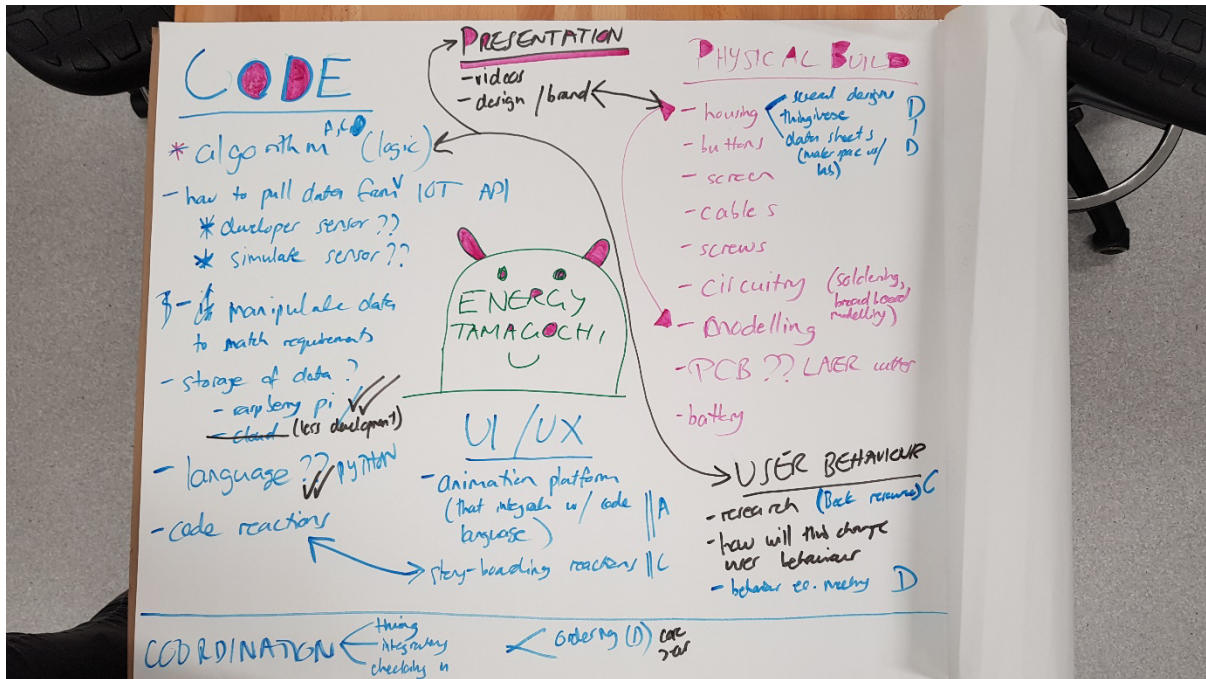 CODE
* algorithm (logic)
- how to pull data from IOT API
* developer sensor ??
* simulate sensor ??
- manipulate data
to match requirements
- storage of data ?
- raspberry pi
- cloud (less development)
- language ?? PYTHON
- code reactions
PRESENTATION
- videos
- design / brand
ENERGY
TAMAGOCHI
UI / UX
- animation platform
(that integrates w/ code || A
language)
story-boarding reactions || C
PHYSICAL BUILD
- housing
several designs D
thingiverse
data sheets D
- buttons
- screen
- cables
- screws
- circuitry (soldering,
breadboard
modelling)
- modelling
- PCB ?? LASER cutter
- battery
USER BEHAVIOUR
- research C
- how will this change
user behaviour
- behaviour ec. meeting D
COORDINATION
timing
integrating
checking in
ordering (D)